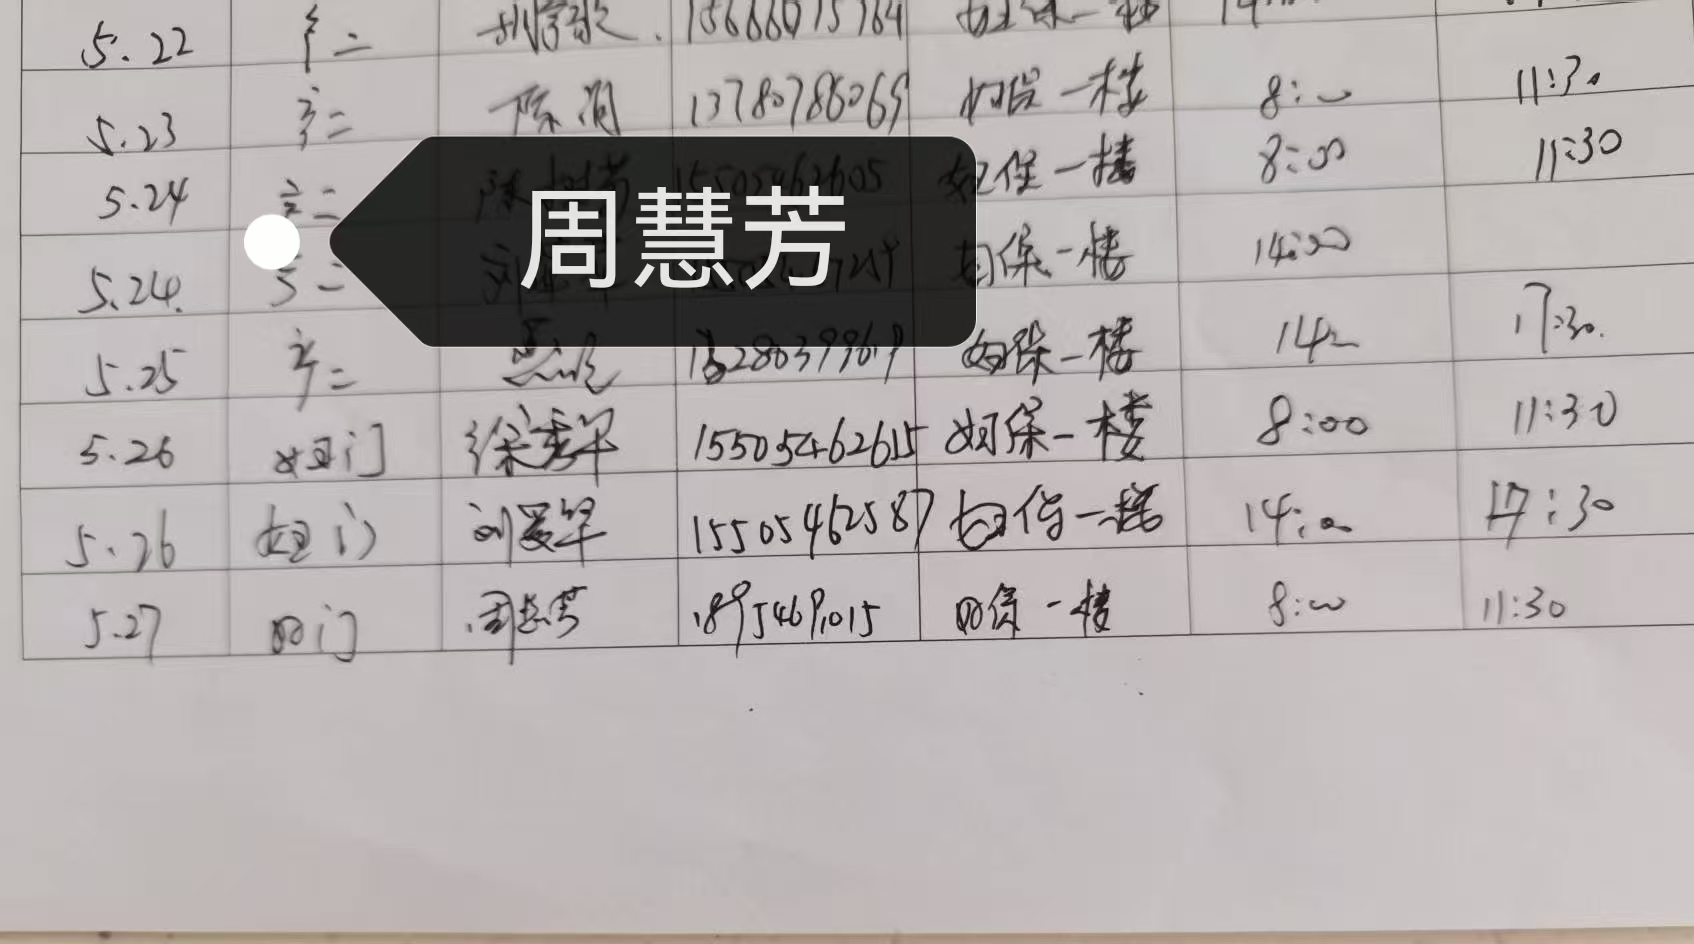 5.22 产二 15666015764 妇保一楼
5.23 产二 陈润 13780786069 妇保一楼 8:00 11:30
5.24 产二 15505462605 妇保一楼 8:00 11:30
周慧芳
5.24. 产二 妇保一楼 14:00
5.25 产二 妇保一楼 14 17:30.
5.26 妇门 徐秀军 15505462615 妇保一楼 8:00 11:30
5.26 妇门 刘爱军 15505462587 妇保一楼 14:00 17:30
5.27 妇门 周慧芳 18954691015 妇保一楼 8:00 11:30